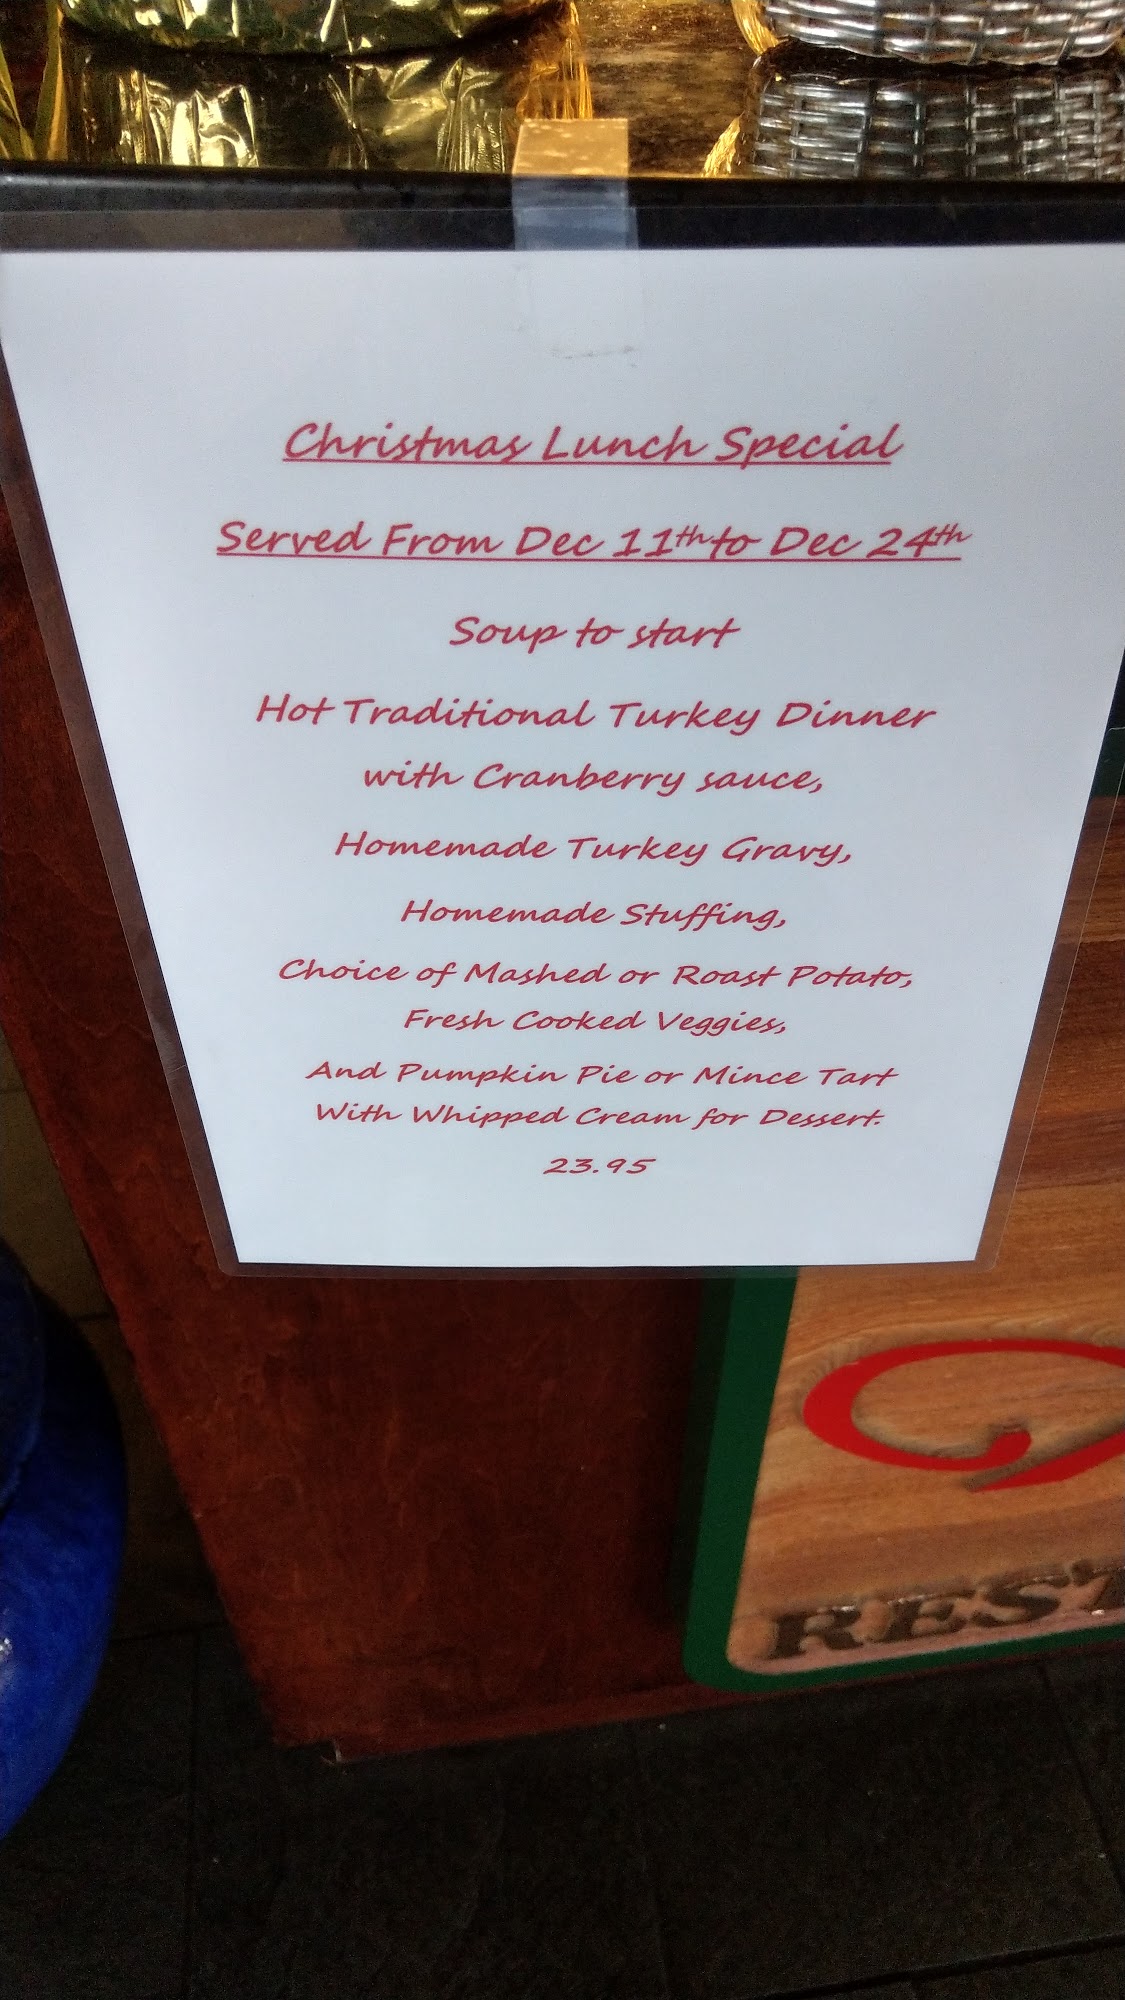 Christmas Lunch Special
Served From Dec 11th to Dec 24th
Soup to start
Hot Traditional Turkey Dinner
with Cranberry sauce,
Homemade Turkey Gravy,
Homemade Stuffing,
Choice of Mashed or Roast Potato,
Fresh Cooked Veggies,
And Pumpkin Pie or Mince Tart
With Whipped Cream for Dessert.
23.95